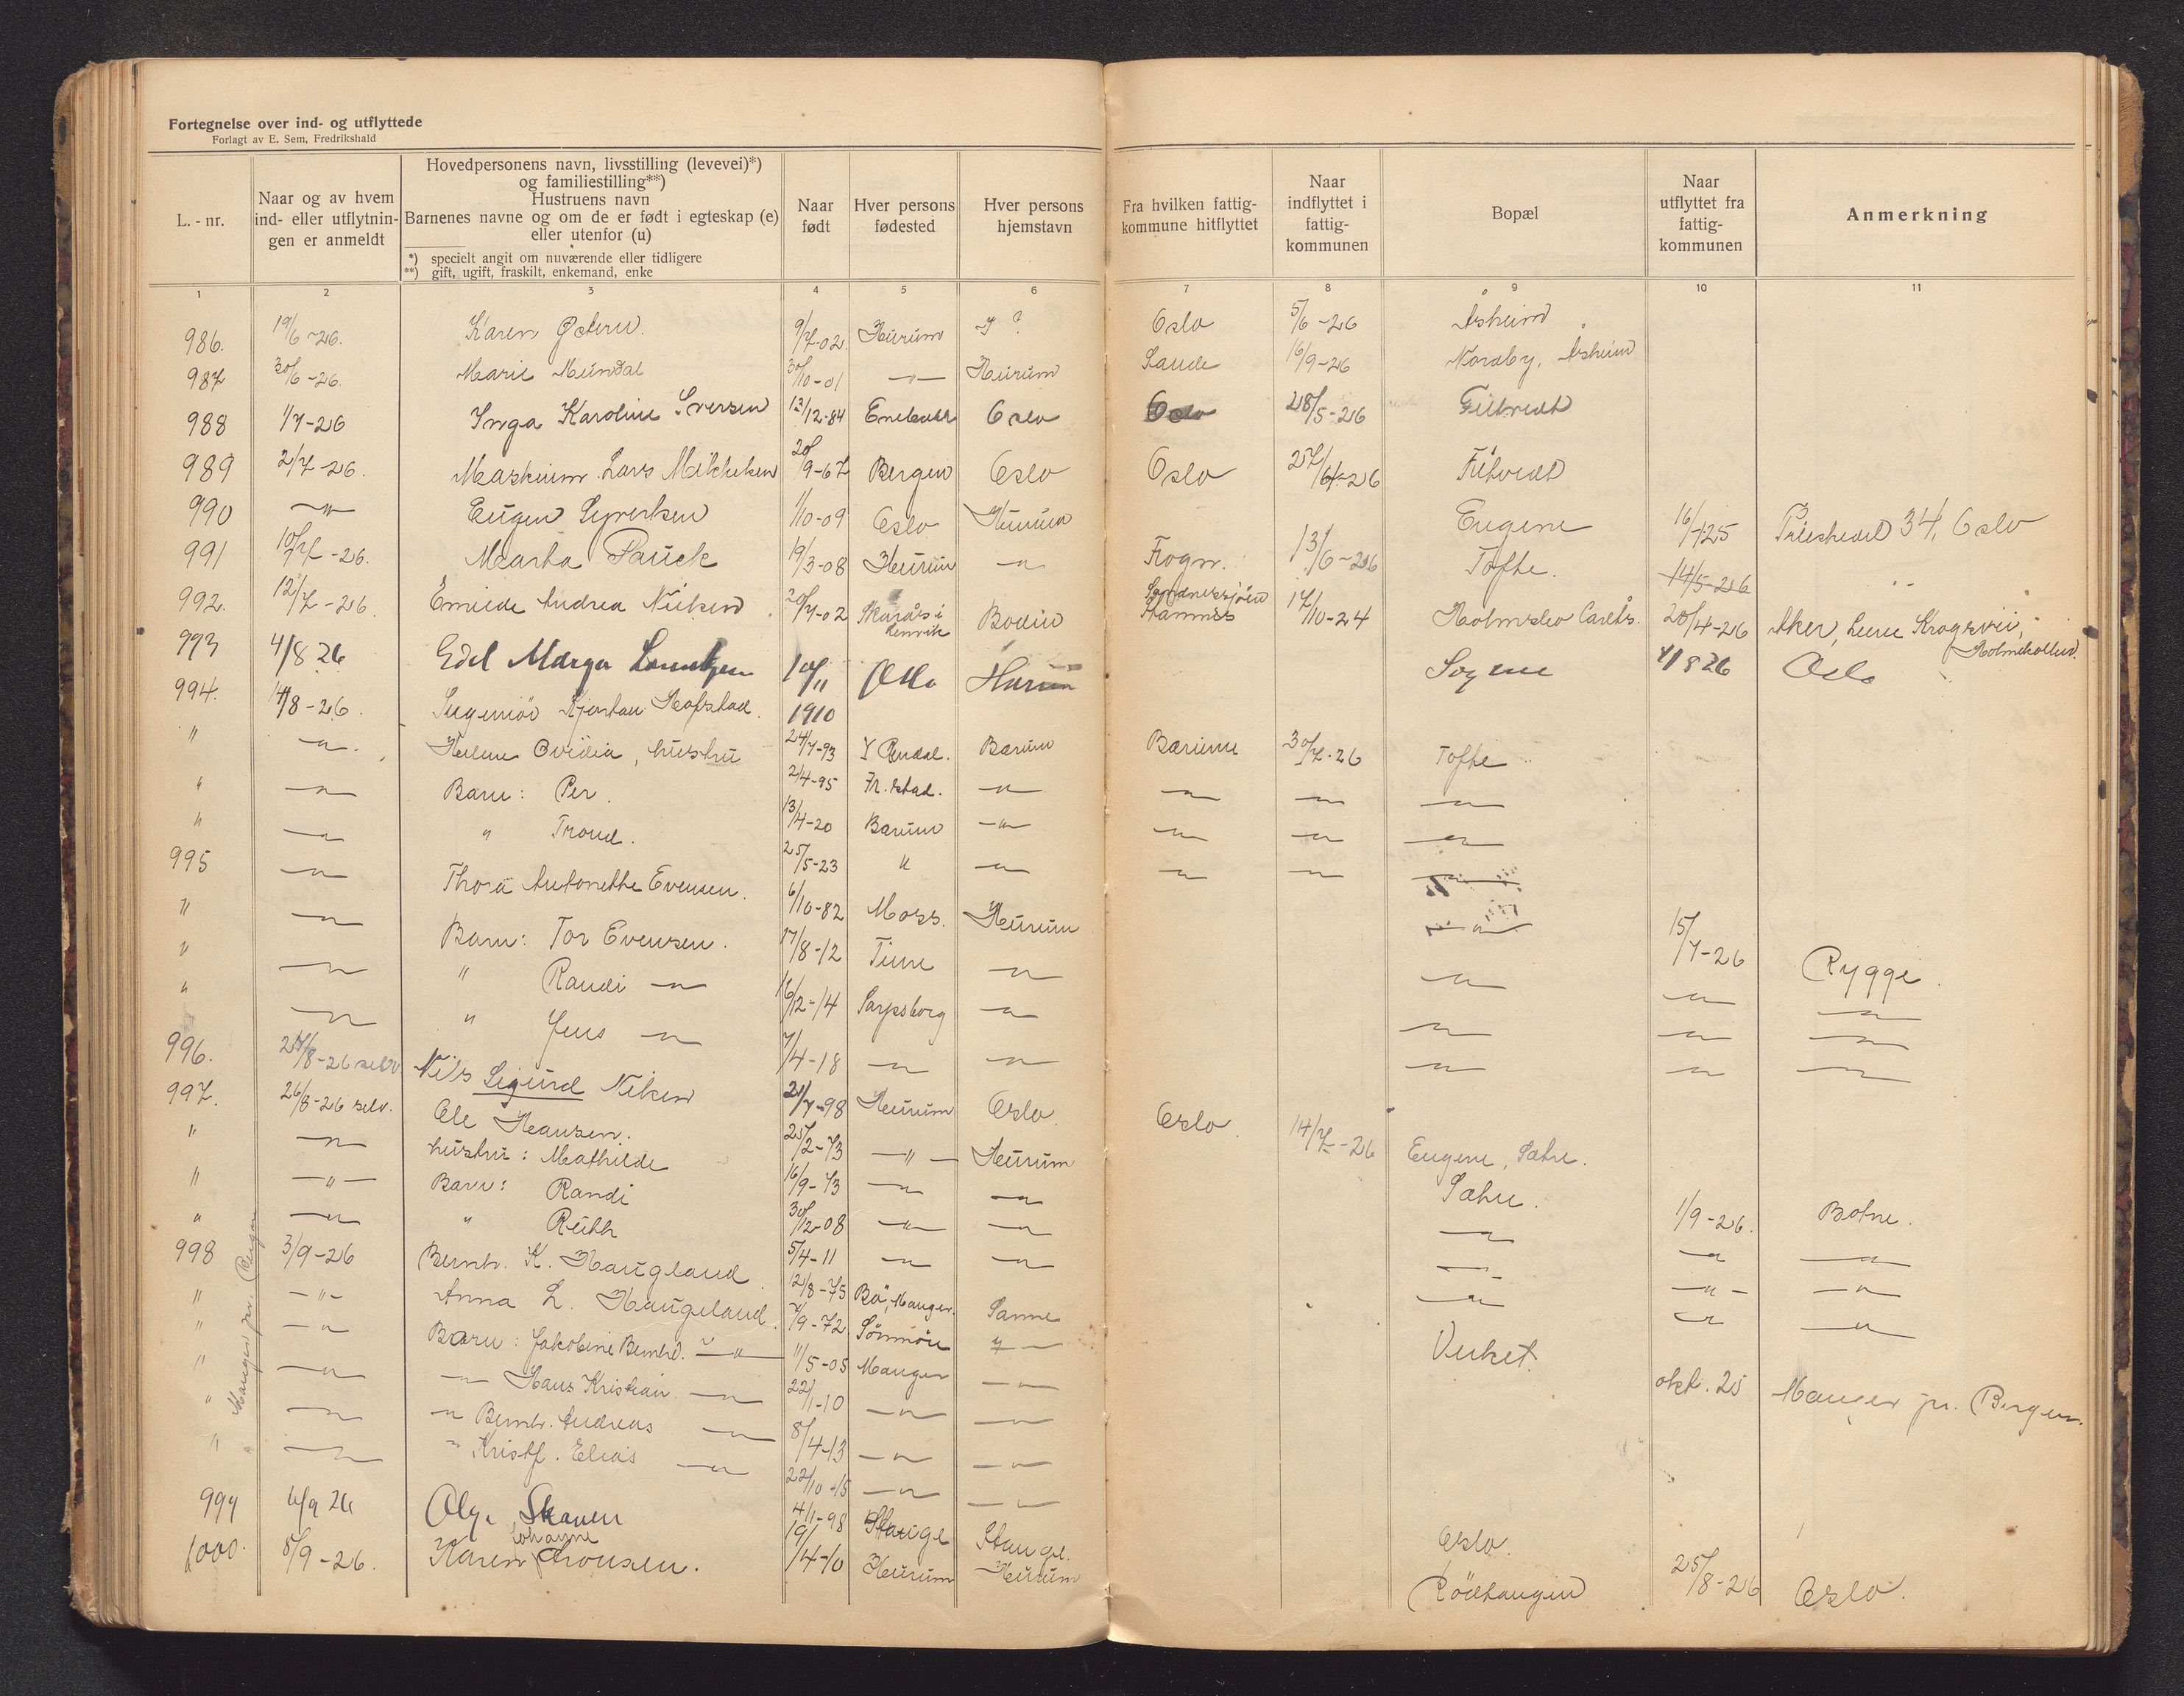 Fortegnelse over ind- og utflyttede
Forlagt av E. Sem, Fredrikshald
L. - nr.
Naar og av hvem ind- eller utflytnin- gen er anmeldt
Hovedpersonens navn, livsstilling (levevei)*)
og familiestilling**)
Hustruens navn
Barnenes navne og om de er født i egteskap (e)
eller utenfor (u)
*) specielt angit om nuværende eller tidligere
**) gift, ugift, fraskilt, enkemand, enke
Naar født
Hver persons fødested
Hver persons hjemstavn
Fra hvilken fattig- kommune hitflyttet
Naar indflyttet i fattig- kommunen
Bopæl
Naar utflyttet fra fattig- kommunen
Anmerkning
1 2 3 4 5 6 7 8 9 10 11
986. 19/6-26. Karen 9/7-02. Hurum ? Oslo 5/6-26 Åsheim
987 30/6-26. Marie Mündal 30/10-01 -"- Hurum Sande 16/9-26 Nordby, Åsheim
988 1/7-26 Inga Karoline Iversen 13/12-84 Enebakk Oslo Oslo 28/5-26 Filtvedt
989 2/7-26. Maskinm. Lars Mikkelsen 20/9-67 Bergen Oslo Oslo 27/6-26 Filtvedt
990 -"- Eugen Syvertsen 1/10-09 Oslo Hurum Engene 16/ 25 34, Oslo
991 10/7-26. Martha Sauck 19/3-08 Hurum -"- Frogn. 13/6-26 Tofte. 14/5-26
992. 12/7-26. Emilde Andrea Nielsen 20/7-02 Bodin Sandnessjøen Stamnes 17/10-24 Holmsbo 20/4-26 Aker, Krogsvei, Holmekollen.
993 4/8 26 Edel Marga 10/11 Oslo Hurum Sogne 4/8 26 Oslo
994. 14/8-26. Ingeniør Kjerstan Hofstad. 1910
" -"-. Helene Ovidia, hustru 24/7-93 Y Rendal. Bærum Bærum 30/7-26 Tofte
" -"- Barn: Per. 2/4-95 Fr.stad. -"- -"- -"- -"-
" -"- " Trond. 13/4-20 Bærum -"- -"- -"- -"-
995 -"- Thora Antonette Evensen. 25/5-23 " -"- -"- -"- -"-
" -"- Barn: Tor Evensen. 6/10-82 Moss. Hurum -"- 15/7-26 Rygge.
" -"- " Randi -"- 17/8-12 Tune -"- -"- -"- -"-
" -"- " Jens -"- 16/12-14 Sarpsborg -"- -"- -"- -"-
996. 24/8-26 selv Nils Sigurd Nilsen 7/4-18 -"- -"- -"- -"- -"-
997. 26/8-26 selv. Ole Hansen. 21/7-98 Hurum Oslo. Oslo. 14/7-26 Engene, Sætre.
" -"- hustru: Mathilde 25/2-73 -"- Hurum Sætre. 1/9-26. Botne.
" -"- Barn: Randi 16/9-73 -"- -"- -"- -"- -"-
" -"- " Ruth 30/12-08 -"- -"- -"- -"- -"-
998 3/9-26 Bernh. K. Haugland. 5/4-11 -"- -"- -"- -"- -"-
" -"- Anna L. Haugeland. 12/8-75 Bø, Manger. Samme Verket. okt. 25 Manger pr. Bergen.
" -"- Barn: Jakobine Bernhd. -"- 7/9-72 Sönmöre -"-
" -"- -"- Hans Kristian -"- 11/5-05 Manger -"-
" -"- -"- Bernh. Andreas -"- 22/1-10 -"- -"-
" -"- -"- Kristf. Elias -"- 8/4-13 -"- -"-
22/10-15 -"- -"-
Manger pr. Bergen
999 4/9 26 Olga Skauen 4/1-98 Stange Stange. Oslo.
1000. 8/9-26. Karen Johanne 19/4-10 Hurum Hurum Rödtangen 25/8-26 Oslo.